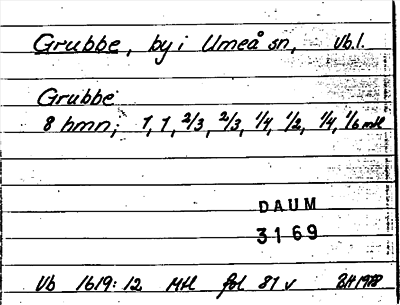 Grubbe, by i Umeå sn, Vb.l.
Grubbe
8 hmn; 1, 1, 2/3, 2/3, 1/4, 1/2, 1/4, 1/6 mtl
DAUM
3169
Vb 1619:12 Mtl fol 81 v